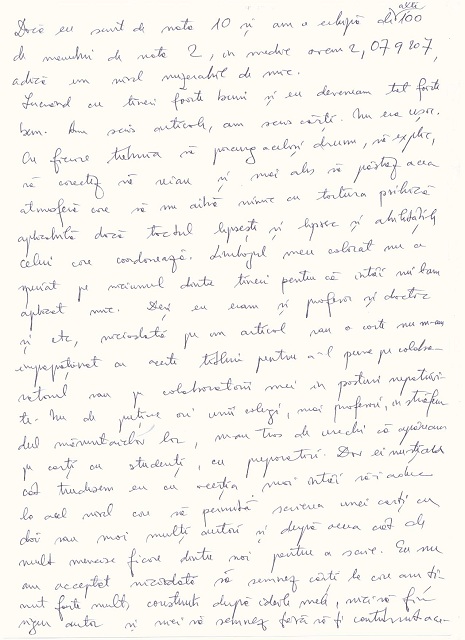 Dacă eu sunt de nota 10 și am o echipă de alți 100
de membri de nota 2, în medie avem 2,079207,
adică un nivel mizerabil de mic.
Lucrând cu tineri foarte buni și eu deveneam tot foarte
bun. Am scris articole, am scris cărți. Nu era ușor.
Cu fiecare trebuia să parcurg același drum, să explic,
să corectez să reiau și mai ales să păstrez acea
atmosferă care să nu aibă nimic cu tortura psihică
aplicabilă dacă tactul lipsește și lipsesc și abilitățile
celui care coordonează. Limbajul meu colorat nu a
speriat pe niciunul dintre tineri pentru că întâi mi l-am
aplicat mie. Deși eu eram și profesor și doctor
și etc, niciodată pe un articol sau o carte nu m-am
împăunat cu aceste titluri pentru a-l pune pe colabo-
ratorul sau pe colaboratorii mei în posturi neplăcu-
te. Nu de puține ori unii colegi, mai profesori, în străfun-
dul măruntaielor lor, m-au tras de urechi că apăream
pe cărți cu studenți, cu preparatori. Dar ei nu știau
cât trudisem eu cu aceștia, mai întâi să-i aduc
la acel nivel care să permită scrierea unei cărți cu
doi sau mai mulți autori și după aceea cât de
mult muncise fiecare dintre noi pentru a scrie. Eu nu
am acceptat niciodată să semnez cărți la care am ți-
nut foarte mult, construite după ideile mele, nici să fiu
singur autor și nici să semnez fără să fi contribuit cu